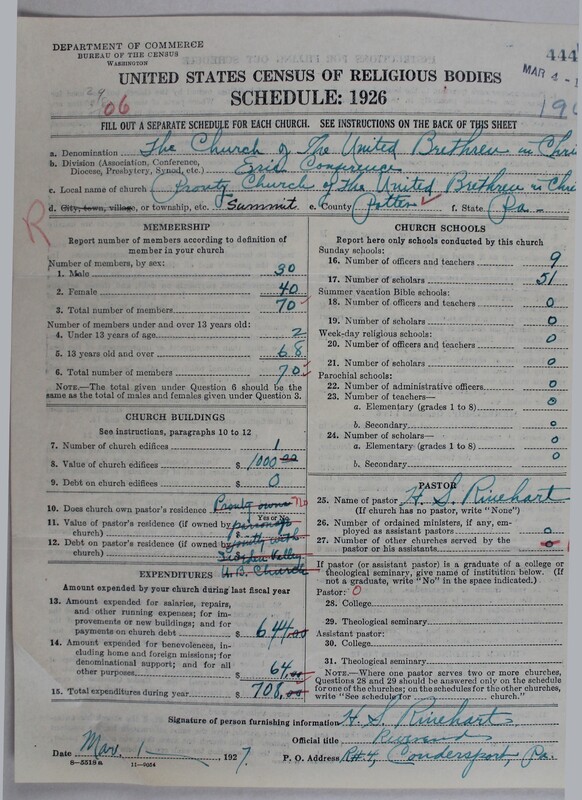 DEPARTMENT OF COMMERCE
BUREAU OF THE CENSUS
WASHINGTON
444
MAR 4 - 1
UNITED STATES CENSUS OF RELIGIOUS BODIES
SCHEDULE: 1926
29
06
196
FILL OUT A SEPARATE SCHEDULE FOR EACH CHURCH. SEE INSTRUCTIONS ON THE BACK OF THIS SHEET
a. Denomination The Church of The United Brethren in Chri
b. Division (Association, Conference, Diocese, Presbytery, Synod, etc.) Erie Conference
c. Local name of church Prouty Church of the United Brethren in Chri
d. City, town, village, or township, etc. Summit e. County Potter f. State Pa.
R
MEMBERSHIP
Report number of members according to definition of
member in your church
Number of members, by sex:
1. Male 30
2. Female 40
3. Total number of members 70
Number of members under and over 13 years old:
4. Under 13 years of age 2
5. 13 years old and over 68
6. Total number of members 70
NOTE.—The total given under Question 6 should be the
same as the total of males and females given under Question 3.
CHURCH BUILDINGS
See instructions, paragraphs 10 to 12
7. Number of church edifices 1
8. Value of church edifices $ 1000 00
9. Debt on church edifices $ 0
10. Does church own pastor's residence Prouty owns No
Yes or No
11. Value of pastor's residence (if owned by parsonage
church) $
12. Debt on pastor's residence (if owned by jointly with
church) $ Valley
U.B. Church
EXPENDITURES
Amount expended by your church during last fiscal year
13. Amount expended for salaries, repairs,
and other running expenses; for im-
provements or new buildings; and for
payments on church debt $ 644.00
14. Amount expended for benevolences,
including home and foreign missions; for
denominational support; and for all
other purposes $ 64.00
15. Total expenditures during year $ 708.00
CHURCH SCHOOLS
Report here only schools conducted by this church
Sunday schools:
16. Number of officers and teachers 9
17. Number of scholars 51
Summer vacation Bible schools:
18. Number of officers and teachers 0
19. Number of scholars 0
Week-day religious schools:
20. Number of officers and teachers 0
21. Number of scholars 0
Parochial schools:
22. Number of administrative officers 0
23. Number of teachers—
a. Elementary (grades 1 to 8) 0
b. Secondary 0
24. Number of scholars—
a. Elementary (grades 1 to 8) 0
b. Secondary 0
PASTOR
25. Name of pastor H. S. Rinehart
(If church has no pastor, write "None")
26. Number of ordained ministers, if any, em-
ployed as assistant pastors 0
27. Number of other churches served by the
pastor or his assistants
If pastor (or assistant pastor) is a graduate of a college or
theological seminary, give name of institution below. (If
not a graduate, write "No" in the space indicated.)
Pastor: 0
28. College
29. Theological seminary
Assistant pastor:
30. College
31. Theological seminary
NOTE.—Where one pastor serves two or more churches,
Questions 28 and 29 should be answered only on the schedule
for one of the churches; on the schedules for the other churches,
write "See schedule for church."
Signature of person furnishing information H. S. Rinehart
Official title Reverend
Date Mar. 1 1927. P. O. Address R#4, Coudersport, Pa.
8-5518a 11-9054